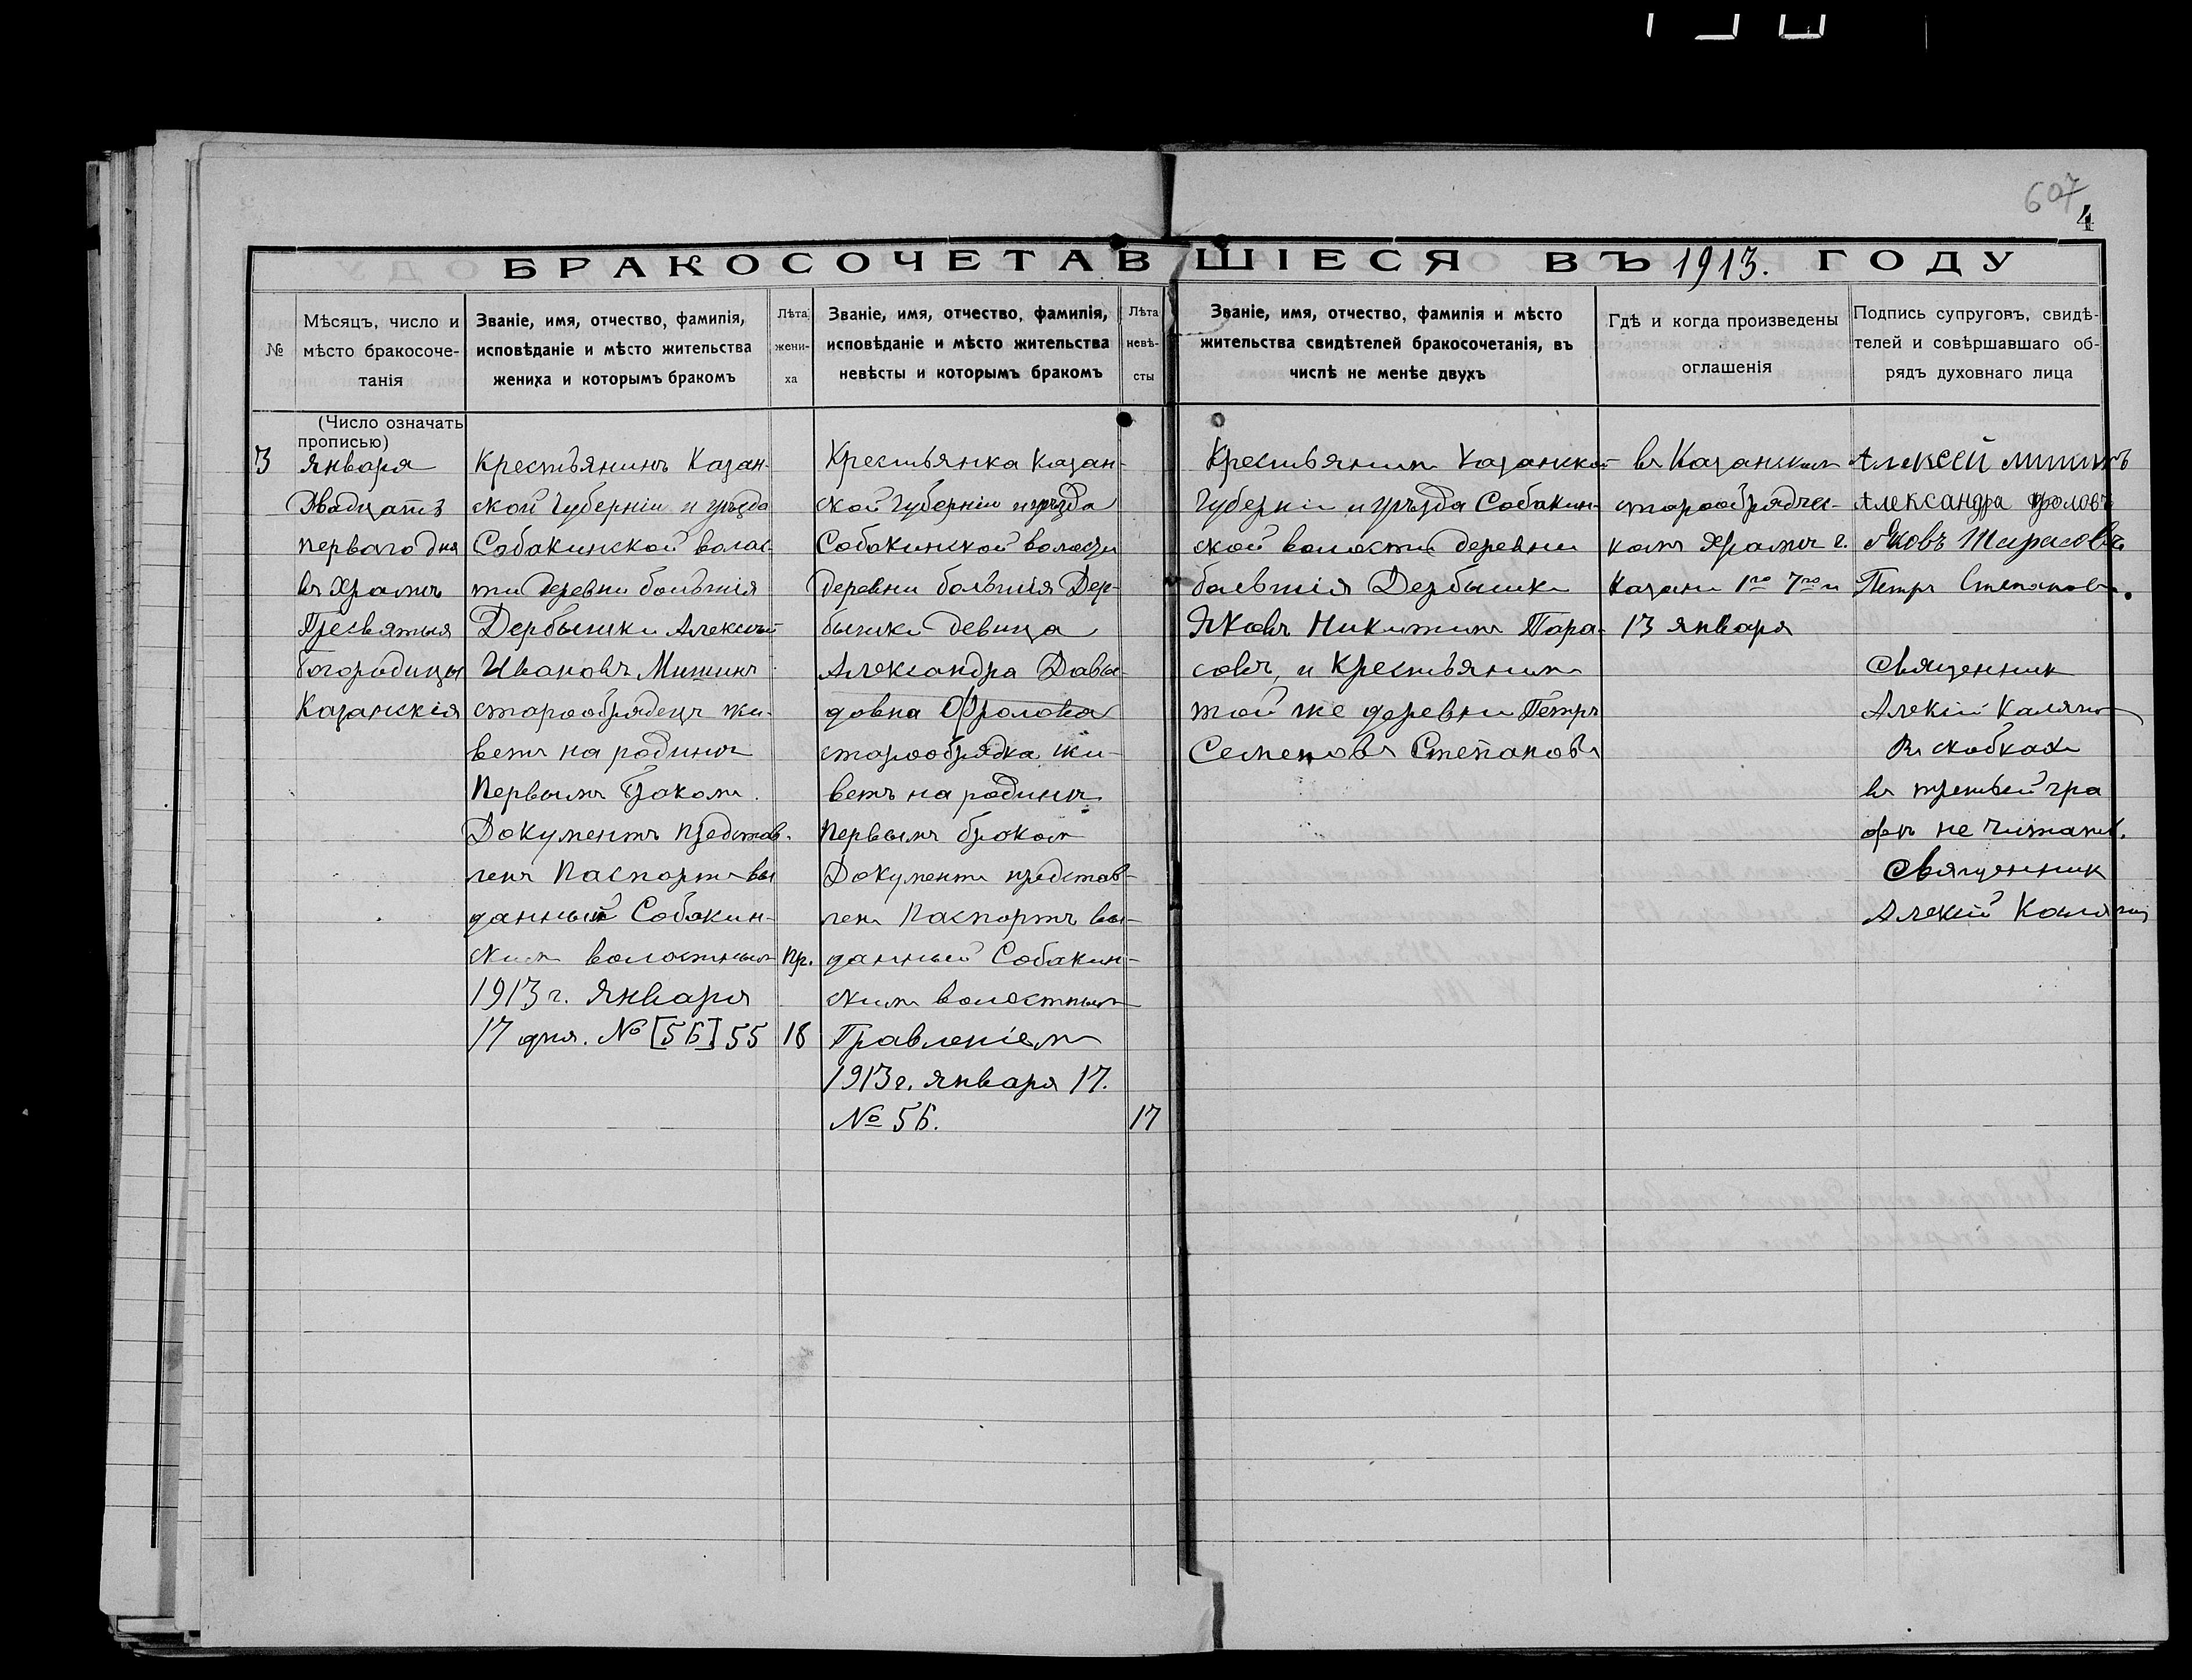 607
4
БРАКОСОЧЕТАВШІЕСЯ ВЪ 1913. ГОДУ
№
Мѣсяцъ, число и
мѣсто бракосоче-
танія
Званіе, имя, отчество, фамилія,
исповѣданіе и мѣсто жительства
жениха и которымъ бракомъ
Лѣта
жени-
ха
Званіе, имя, отчество, фамилія,
исповѣданіе и мѣсто жительства
невѣсты и которымъ бракомъ
Лѣта
невѣ-
сты
Званіе, имя, отчество, фамилія и мѣсто
жительства свидѣтелей бракосочетанія, въ
числѣ не менѣе двухъ
Гдѣ и когда произведены
оглашенія
Подпись супруговъ, свидѣ-
телей и совѣршавшаго об-
рядъ духовнаго лица
(Число означать
прописью)
3
Января
Двадцать
перваго дня
въ Храмѣ
Пресвятыя
богородицы
Казанскія
Крестьянинъ Казан-
ской Губерніи и уѣзда
Собакинской волос-
ти деревни большія
Дербышки Алексѣй
Ивановъ Митинъ
старообрядецъ жи-
ветъ на родинѣ
Первымъ бракомъ.
Документъ представ-
ленъ Паспортъ вы
данный Собакин-
скимъ волостнымъ пр.
1913 г. Января
17 дня. № [56] 55
18
Крестьянка Казан-
ской Губерніи и уѣзда
Собакинской волости
деревни большія Дер-
бышки девица
Александра Давы-
довна Фролова
старообрядка жи-
ветъ на родинѣ
первымъ бракомъ
Документъ представ-
ленъ Паспортъ вы-
данный Собакин-
скимъ волостнымъ
Правленіемъ
1913 г. января 17.
№ 56.
17
Крестьянинъ Казанской
Губерніи и уѣзда Собакин-
ской волости деревни
большія Дербышки
Яковъ Никитинъ Тара-
совъ, и Крестьянинъ
той же деревни Петръ
Семеновъ Степановъ
въ Казанскомъ
старообрядчес-
комъ Храмѣ г.
Казани 1го 7го и
13 января
Алексей митинъ
Александра фролова
Яковъ Тарасовъ
Петръ Степановъ.
Священник
Алексій Калягин
Въ скобкахъ
въ третьей гра
фѣ не читать.
Священник
Алексій Калягин